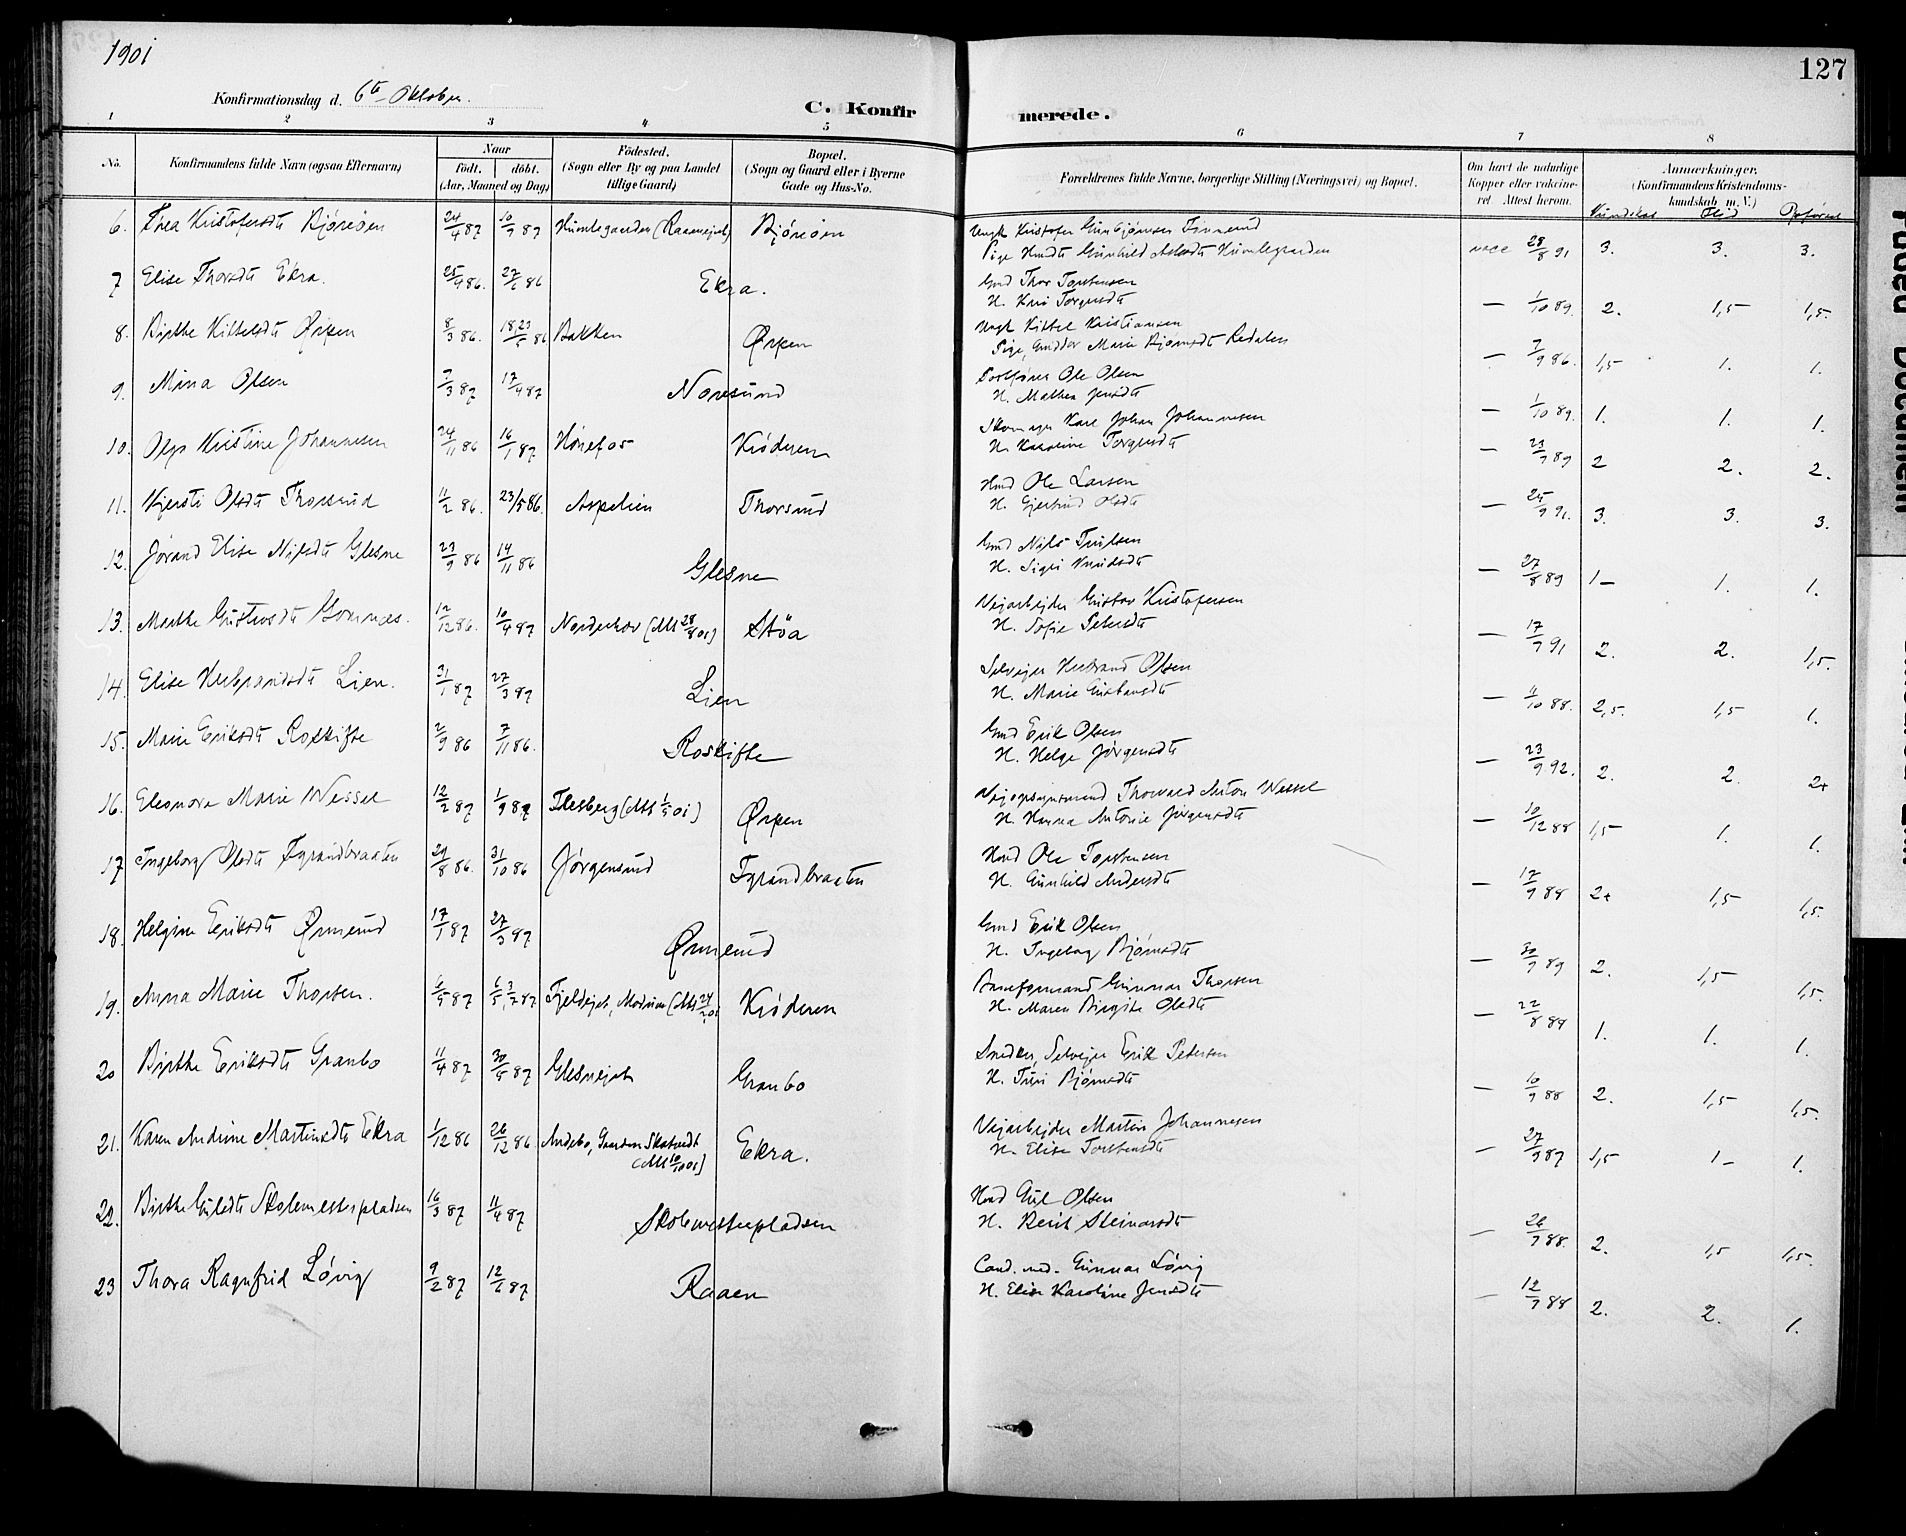 1901
127
Konfirmationsdag d. 6te Oktober.
C. Konfirmerede.
1 2 3 4 5 6 7 8
No. Konfirmandens fulde Navn (ogsaa Efternavn) Naar født. døbt. (Aar, Maaned og Dag) Fødested. (Sogn eller By og paa Landet tillige Gaard) Bopæl. (Sogn og Gaard eller i Byerne Gade og Hus-No. Forældrenes fulde Navne, borgerlige Stilling (Næringsvei) og Bopæl. Om havt de naturlige Kopper eller vaccineret. Attest herom. Anmærkninger. (Konfirmandens Kristendomskundskab m. V.)
Kundskab Flid
6. Thea Kristofersdt Bjøreøen 24/4 87 10/7 87 Bjøreøen Ungk Kristofer Gunbjørnsen vacc 28/8 91 3. 3. 3.
Pige Gunhild
7 Elise Thorsdt Ekra. 27/6 86 Ekra. Gmd Thor Torstensen
H. Kari Torgersdt — 1/10 89. 2. 1,5 1,5.
8. Birthe Kittelsdt Ørpen 8/3 86. Bakken Ørpen Ungk Kittel Kristiansen
Pige, Marie Bjørnsdt Redalen — 7/9 86. 1,5 1. 1.
9. Mina Olsen 7/3 87 17/4 87 Noresund Ole Olsen
H. Mathea Jensdt — 1/10 89. 1. 1. 1.
10. Olga Kristine Johannesen 24/11 86 16/1 87 Hønefos Krøderen Skomager Karl Johan Johannesen
H. Karoline Torgersdt — 23/9 89 2 2. 2.
11. Kjersti Olsdt Thorsrud 11/2 86. 23/5 86. Aspelien Thorsrud Hmd Ole Larsen
H. Gjertrud Olsdt — 25/9 91. 3. 3. 3.
12. Jørand Elise Nilsdt Glesne 23/9 86 14/11 86 Glesne Gmd Nils
H. Sigri Knudsdt — 27/8 89 1- 1. 1.
13. Marthe Gustavsdt 12/12 86. 10/4 87 Norderhov (Att 28/8 01) Støa Veiarbeider Gustav Kristofersen
H. Sofie Petersdt — 17/7 91 2. 2. 1,5.
14. Elise Herbrandsdt Lien. 31/1 87 27/3 87 Lien Selveier Herbrand Olsen
H. Marie Gustavsdt — 11/10 88. 2,5. 1,5 1.
15. Marie Eriksdt Roskifte 2/9 86 7/11 86. Roskifte Gmd Erik Olsen
H. Helge Jørgensdt — 23/9 92. 2. 2. 2+
16. Eleonora Marie Wessel 12/2 87 Flesberg (Att 1/5 01) Ørpen Veiopsynsmand Thorvald Anton Wessel
H. Hanna Antonie Jørgensdt — 10/12 88 1,5 1. 1.
17 Ingeborg Olsdt Fyrandbraaten 29/8 86. 31/10 86 Jørgensrud Fyrandbraaten Hmd Ole Torstensen
H. Gunhild Andersdt — 17/9 88 2+ 1,5 1,5.
18. Helgine Eriksdt Ørmerud 17/1 87 27/3 87 Ørmerud Gmd Erik Olsen
H. Ingeborg Bjørnsdt — 30/9 89 2. 1,5 1,5.
19. Anna Marie Thorsen. Modum Krøderen Baneformand Gunnar Thorsen
H. Maren Birgitte Olsdt — 22/8 89 1. 1. 1.
20 Birthe Eriksdt Granbo 11/4 87 30/5 87 Glesneiet Granbo Snedker, Selveier Erik Petersen
H. Turi Bjørnsdt — 10/9 88 2. 1,5 1,5.
21. Karen Andrine Martinsdt Ekra 1/12 86 26/12 86 Andebo, Gaarden Skatvedt Ekra. Veiarbeider Martin Johannesen
(Att 10/10 01) H. Elise Torstensdt — 27/9 87 1,5 1- 1.
22. Birthe Gulsdt Skolemesterpladsen 16/3 87 11/4 87 Skolemesterpladsen Hmd Gul Olsen
H. Berit Steinarsdt — 26/9 88. 2. 1,5 1,5.
23 Thora Ragnfrid Løvig 9/2 87 12/6 87 Raaen Cand. med. Gunnar Løvig
H. Elise Karoline Jensdt — 12/9 88 2. 2. 1.